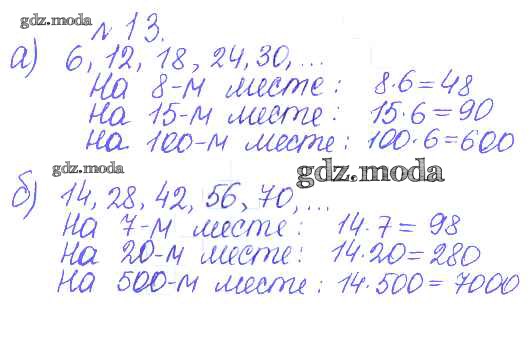 gdz.moda
№13.
а) 6, 12, 18, 24, 30, ...
На 8-м месте: 8·6=48
На 15-м месте: 15·6=90
На 100-м месте: 100·6=600
gdz.moda
gdz.moda
б) 14, 28, 42, 56, 70, ...
На 7-м месте: 14·7=98
На 20-м месте: 14·20=280
На 500-м месте: 14·500=7000